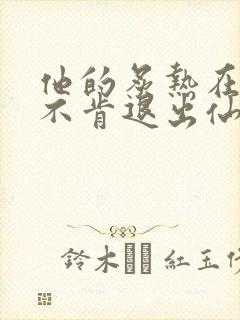 他的炙熱在
不肯退出仙
鈴木 紅玉